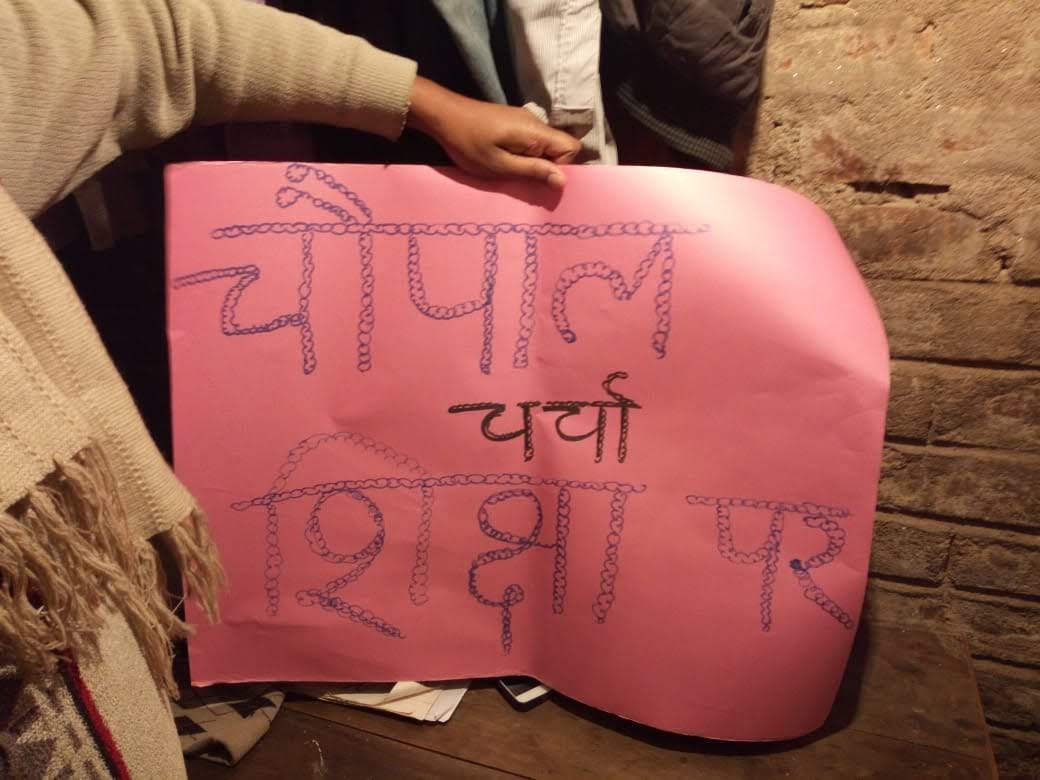 चौपाल
चर्चा
शिक्षा पर